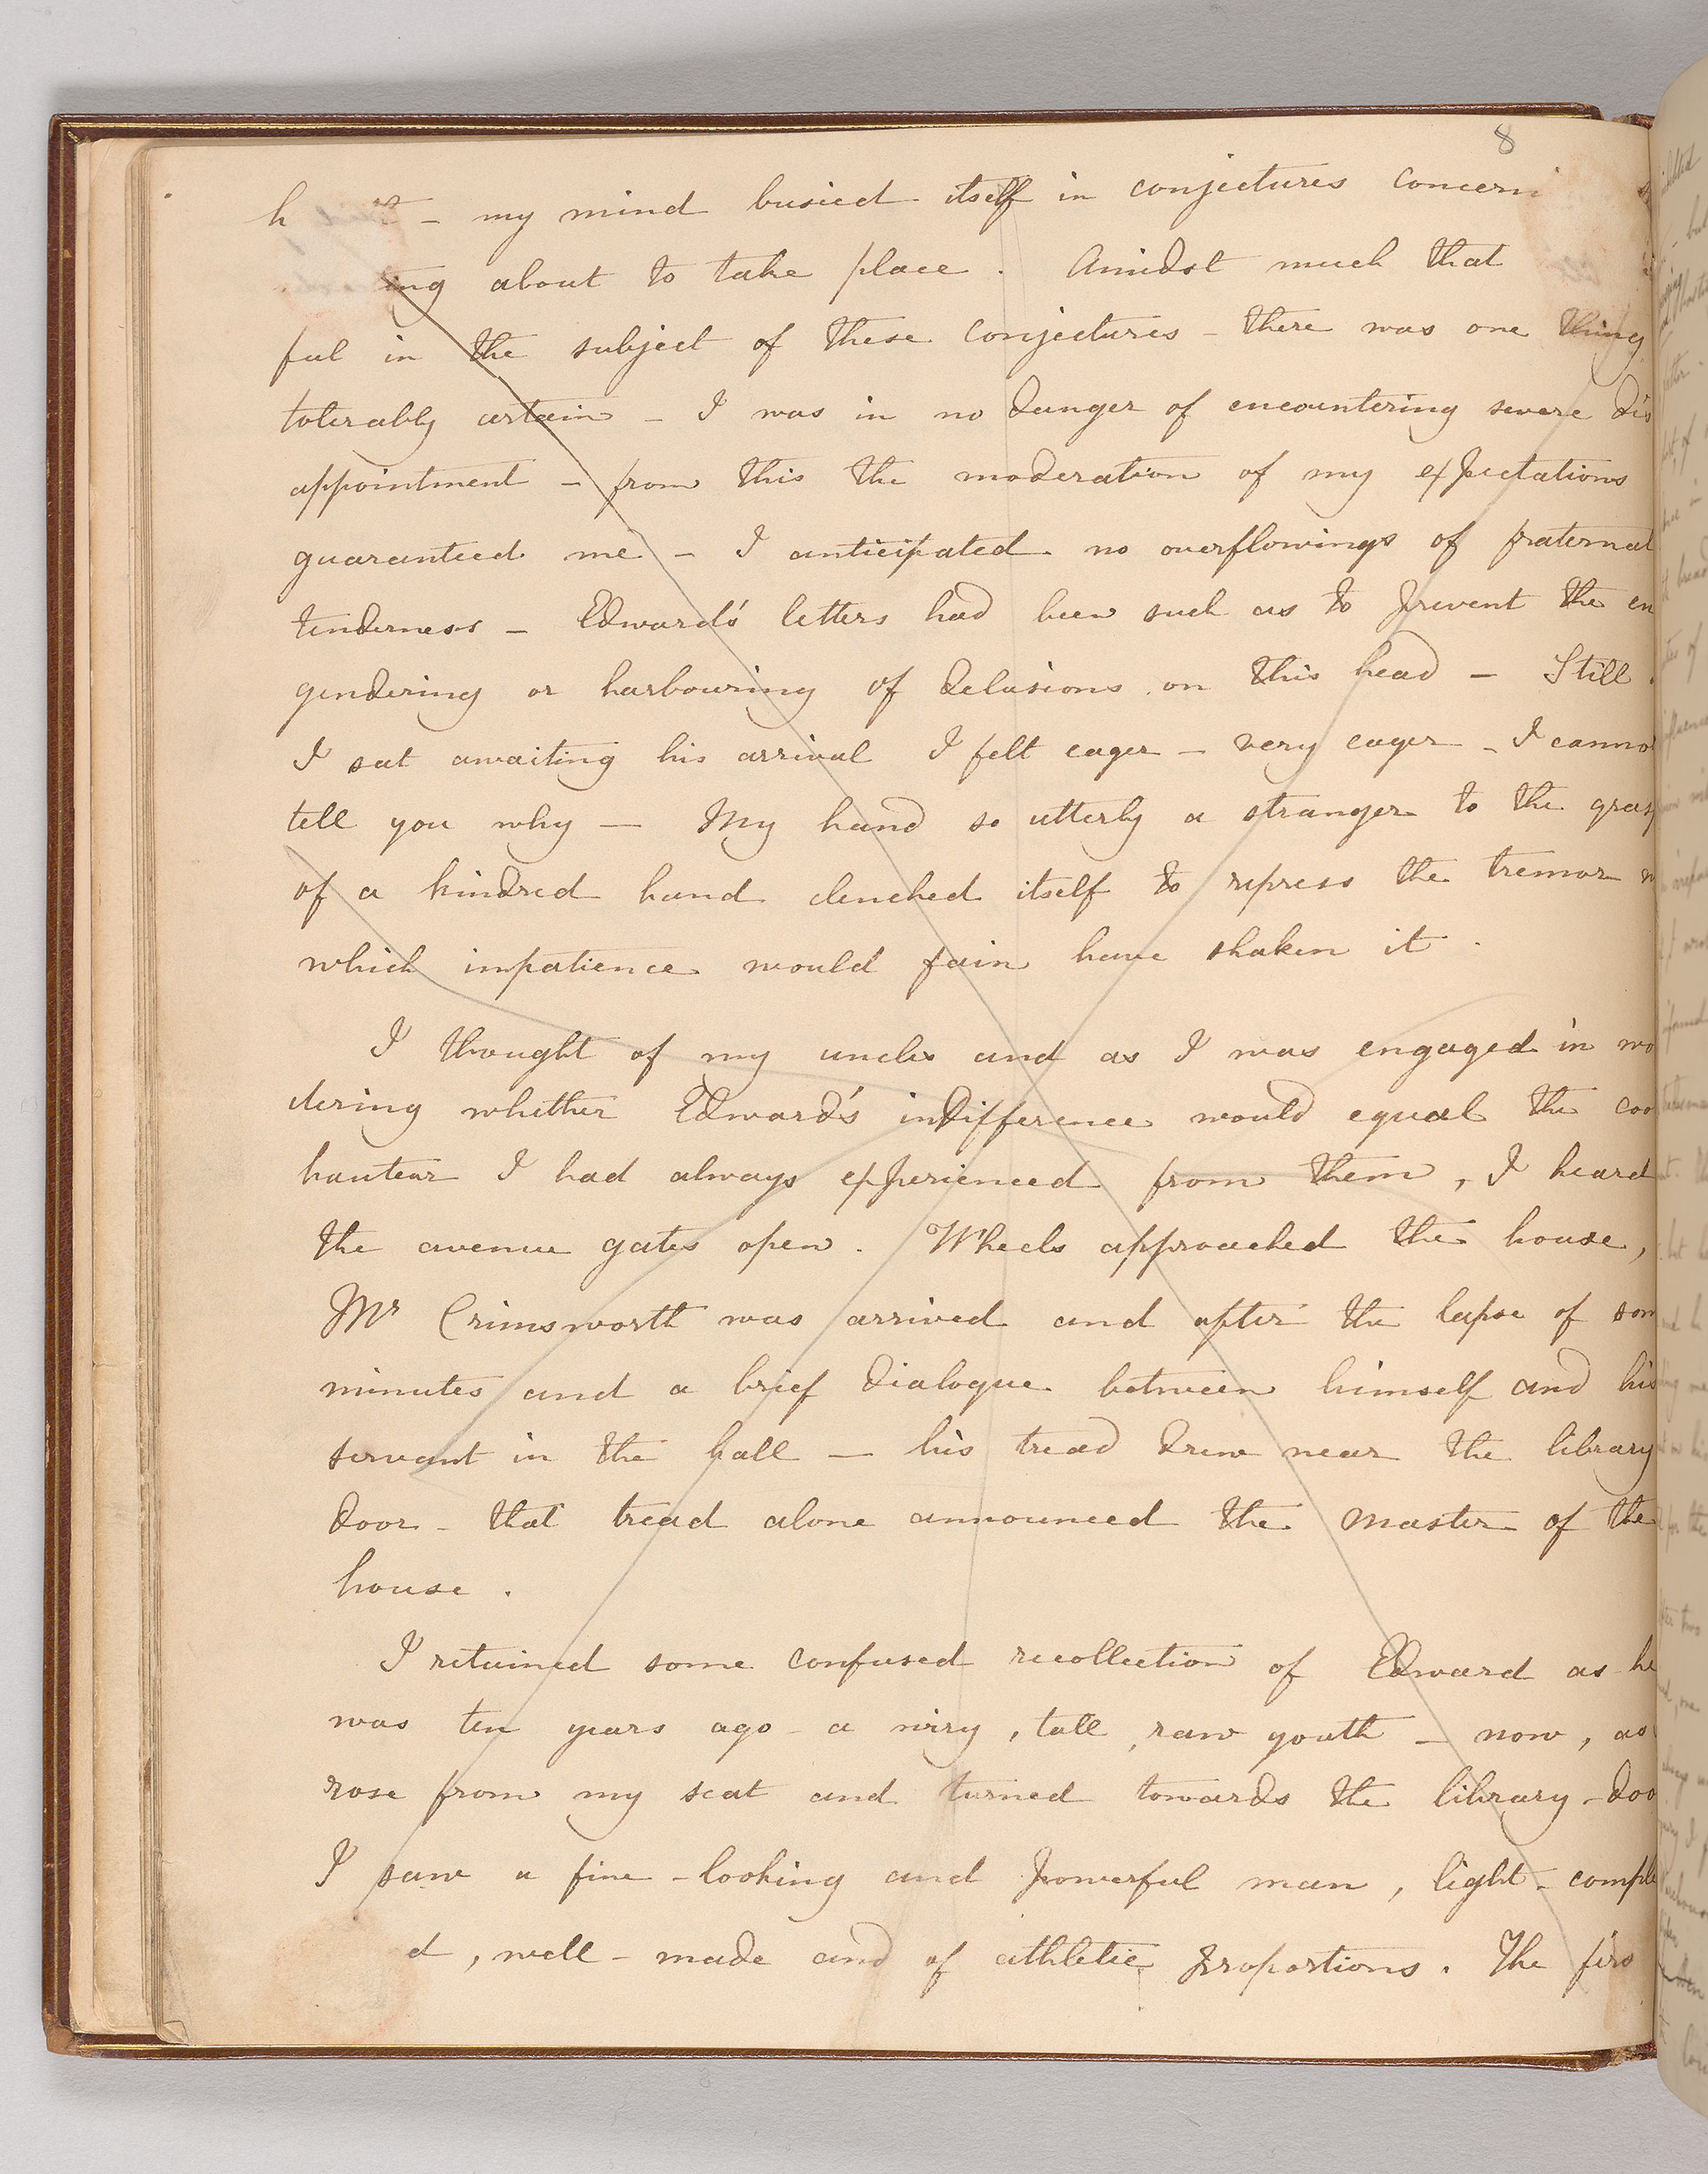 8
h - my mind busied itself in conjectures concerni
ing about to take place . Amidst much that
ful in the subject of these conjectures - there was one thing
tolerably certain - I was in no danger of encountering severe dis
appointment - from this the moderation of my expectations
guaranteed me - I anticipated no overflowings of fraternal
tenderness - Edward's letters had been such as to prevent the en
gendering or harbouring of delusions on this head - Still
I sat awaiting his arrival I felt eager - very eager - I cannot
tell you why - My hand so utterly a stranger to the grasp
of a kindred hand clenched itself to repress the tremor
which impatience would fain have shaken it .
I thought of my uncles and as I was engaged in wo
dering whether Edward's indifference would equal the coo
hauteur I had always experienced from them , I heard
the avenue gates open . Wheels approached the house ,
Mr Crimsworth was arrived and after the lapse of som
minutes and a brief dialogue between himself and his
servant in the hall - his tread drew near the library
door - that tread alone announced the master of the
house .
I retained some confused recollection of Edward as he
was ten years ago - a wiry , tall , raw youth - now , as
rose from my seat and turned towards the library-doo
I saw a fine-looking and powerful man , light-comple
d , well-made and of athletic proportions . The firs